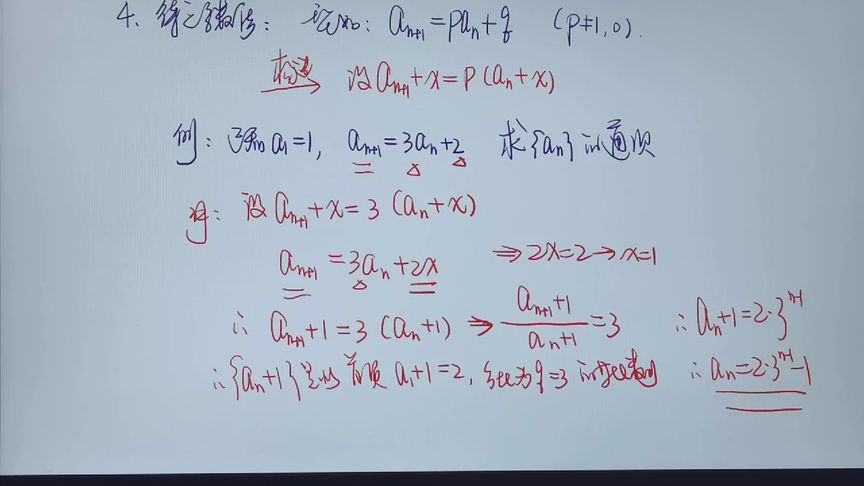 4. 待定系数法: 形如: aₙ₊₁=paₙ+q (p≠1,0).
构造 设aₙ₊₁+x=P(aₙ+x)
例: 已知a₁=1, aₙ₊₁=3aₙ+2 求{aₙ}的通项
解: 设aₙ₊₁+x=3(aₙ+x)
aₙ₊₁=3aₙ+2x ⇒2x=2→x=1
∴ aₙ₊₁+1=3(aₙ+1) ⇒ (aₙ₊₁+1)/(aₙ+1)=3 ∴aₙ+1=2·3ⁿ⁻¹
∴{aₙ+1}是以首项a₁+1=2, 公比为q=3的等比数列 ∴aₙ=2·3ⁿ⁻¹-1